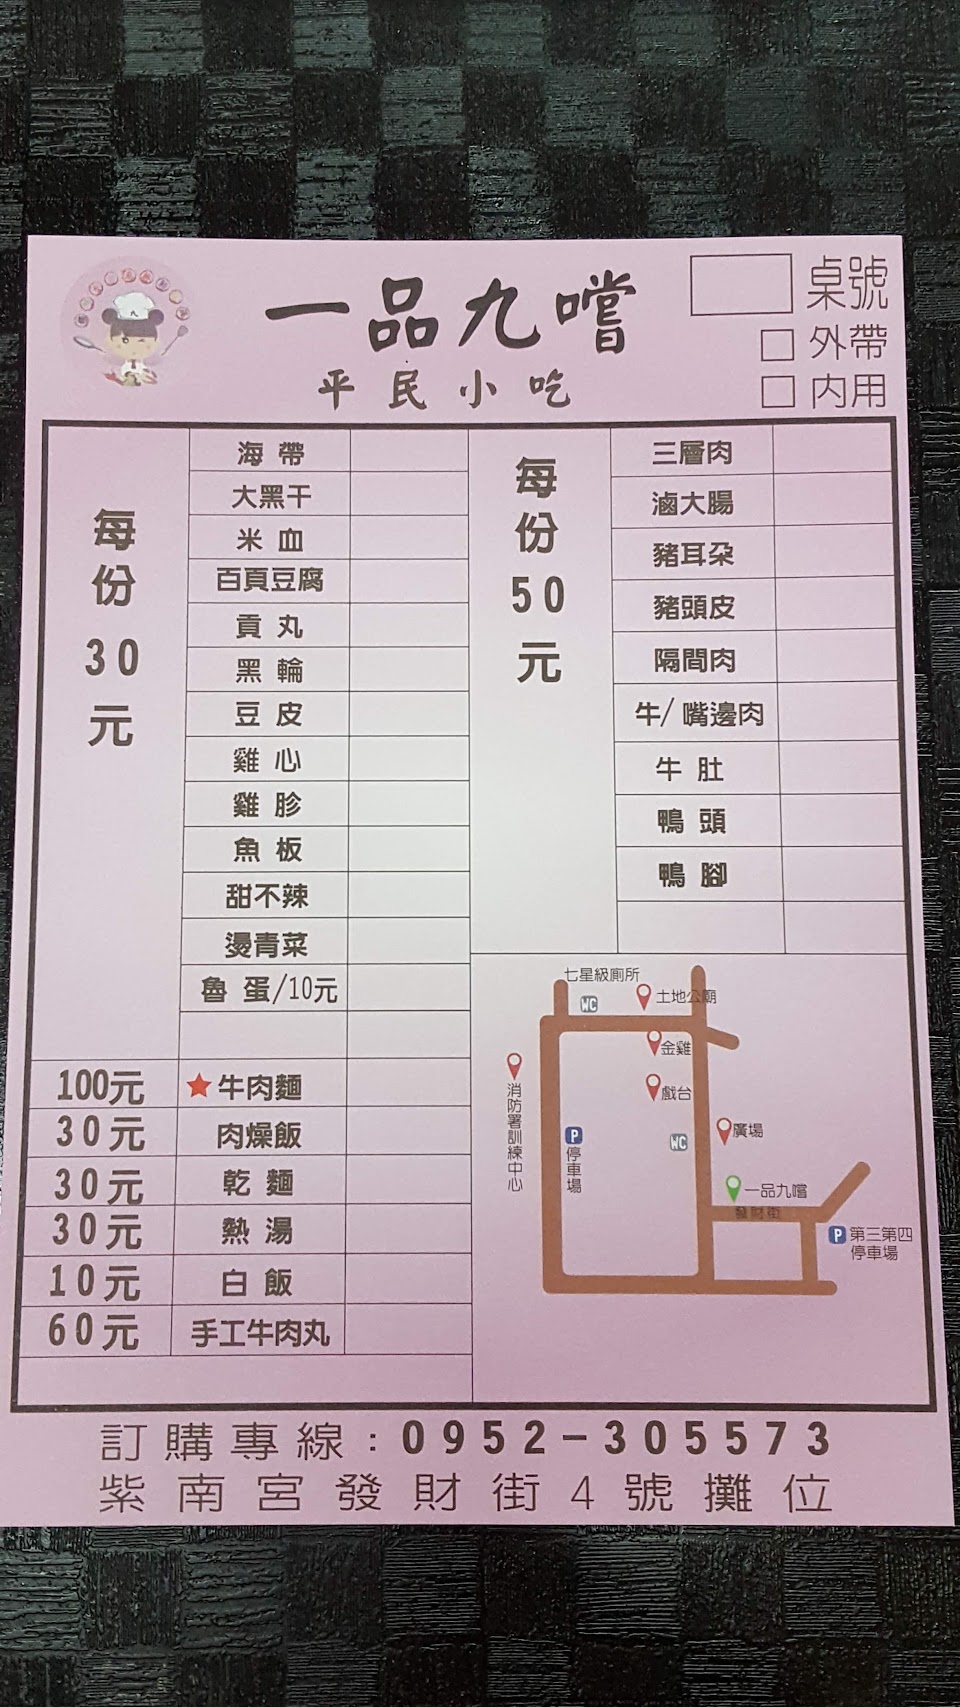 一品九嚐
平民小吃
桌號
外帶
內用
每份30元
海帶
大黑干
米血
百頁豆腐
貢丸
黑輪
豆皮
雞心
雞胗
魚板
甜不辣
燙青菜
魯蛋/10元
100元 ★牛肉麵
30元 肉燥飯
30元 乾麵
30元 熱湯
10元 白飯
60元 手工牛肉丸
每份50元
三層肉
滷大腸
豬耳朵
豬頭皮
隔間肉
牛/嘴邊肉
牛肚
鴨頭
鴨腳
七星級廁所
WC
土地公廟
金雞
戲台
消防署訓練中心
P
停車場
WC
廣場
一品九嚐
發財街
P 第三第四
停車場
訂購專線:0952-305573
紫南宮發財街4號攤位